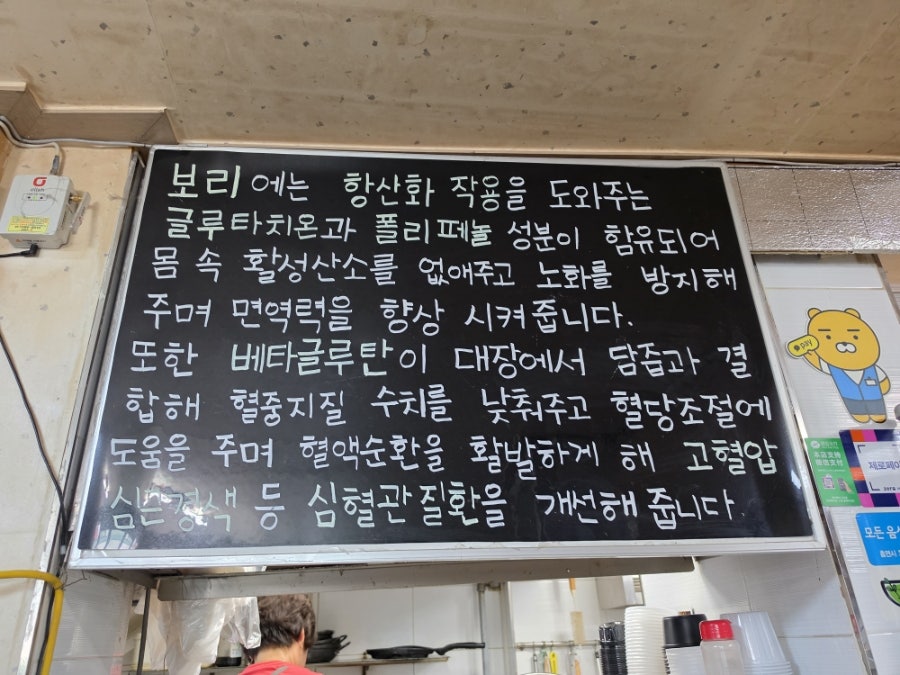 보리에는 항산화 작용을 도와주는
글루타치온과 폴리페놀 성분이 함유되어
몸 속 활성산소를 없애주고 노화를 방지해
주며 면역력을 향상 시켜줍니다.
또한 베타글루탄이 대장에서 담즙과 결
합해 혈중지질 수치를 낮춰주고 혈당조절에
도움을 주며 혈액순환을 활발하게 해 고혈압
심근경색 등 심혈관질환을 개선해줍니다.
pay
제로페이
모든 음식